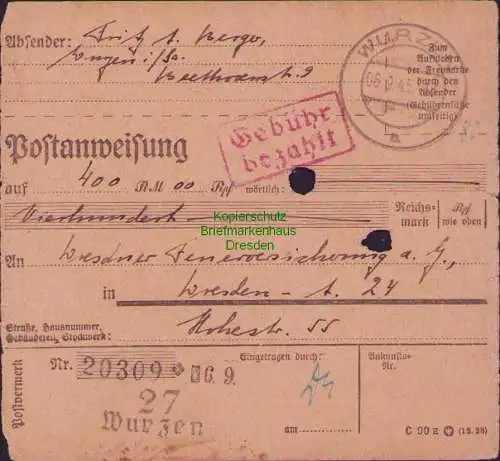 Absender: Fritz A. Berger,
Wurzen i/Sa.
Beethovenstr. 9
WURZ
06.9.45
a
Zum
Aufkleben
der Freimarke
durch den
Absender
(Gebührensätze
umseitig)
Gebühr
bezahlt
Postanweisung
auf 400 RM 00 Rpf wörtlich:
Vierhundert
Reichs-
mark
Rpf
wie oben
Kopierschutz
Briefmarkenhaus
Dresden
An Dresdner Feuerversicherung a. G.,
in Dresden - A. 24
Straße, Hausnummer,
Gebäudeteil, Stockwerk:
Hohestr. 55
Postvermerk
Nr. 20309 * 6. 9.
27
Wurzen
Eingetragen durch:
am
Ankunfts-
Nr.
C 90 a (12.38)